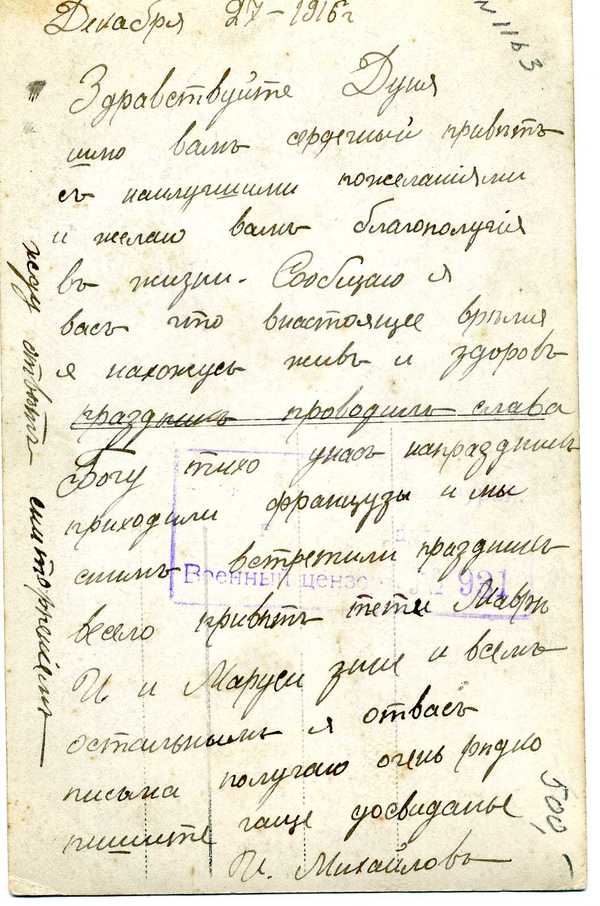 Декабря 27 - 1916 г
N 1163
Здравствуйте Дуня
шлю вамъ сердечный приветъ
съ наилучшими пожеланіями
и желаю вамъ благополучія
въ жизни. Сообщаю я
васъ что внастоящее время
я нахожусь живъ и здоровъ
праздникъ проводилъ слава
Богу тихо унасъ напраздникъ
приходили французы и мы
снимъ встретили праздникъ
Военный ценз № 931
весело приветъ тети Мавры
И и Маруси зине и всемъ
остальнымъ я отвасъ
письма получаю очень редко
пишите чаще досвиданье
И. Михайловъ
жду ответъ снитерпеніемъ
500,